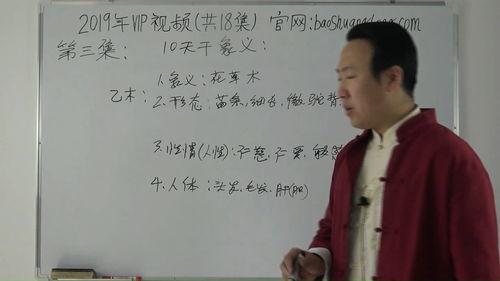 2019年VIP视频(共18集) 官网:baoshuang.com
第三集: 10天干象义:
1.象义:花草木
乙木: 2.形态:苗条,细长,微驼背
3.性情(人性):仁慈,仁爱,敏感
4.人体:头发,毛发,肝(胆)